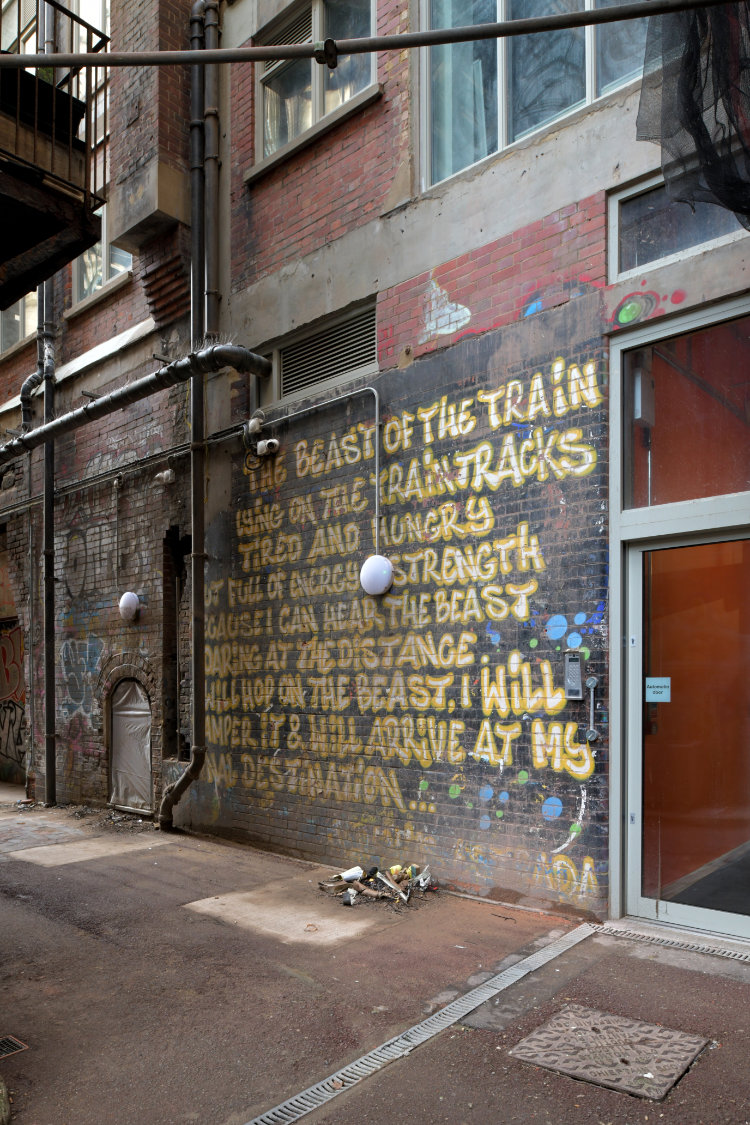 THE BEAST OF THE TRAIN
LYING ON THE TRAINTRACKS
TIRED AND HUNGRY
FULL OF ENERGY & STRENGTH
CAUSE I CAN HEAR THE BEAST
AT THE DISTANCE
HOP ON THE BEAST, I WILL
IT & WILL ARRIVE AT MY
DESTINATION...
Automatic
door